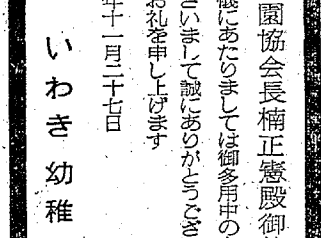 園協会長楠正憲殿御
儀にあたりましては御多用中の
ざいまして誠にありがとうござ
お礼を申し上げます
年十一月二十七日
いわき幼稚